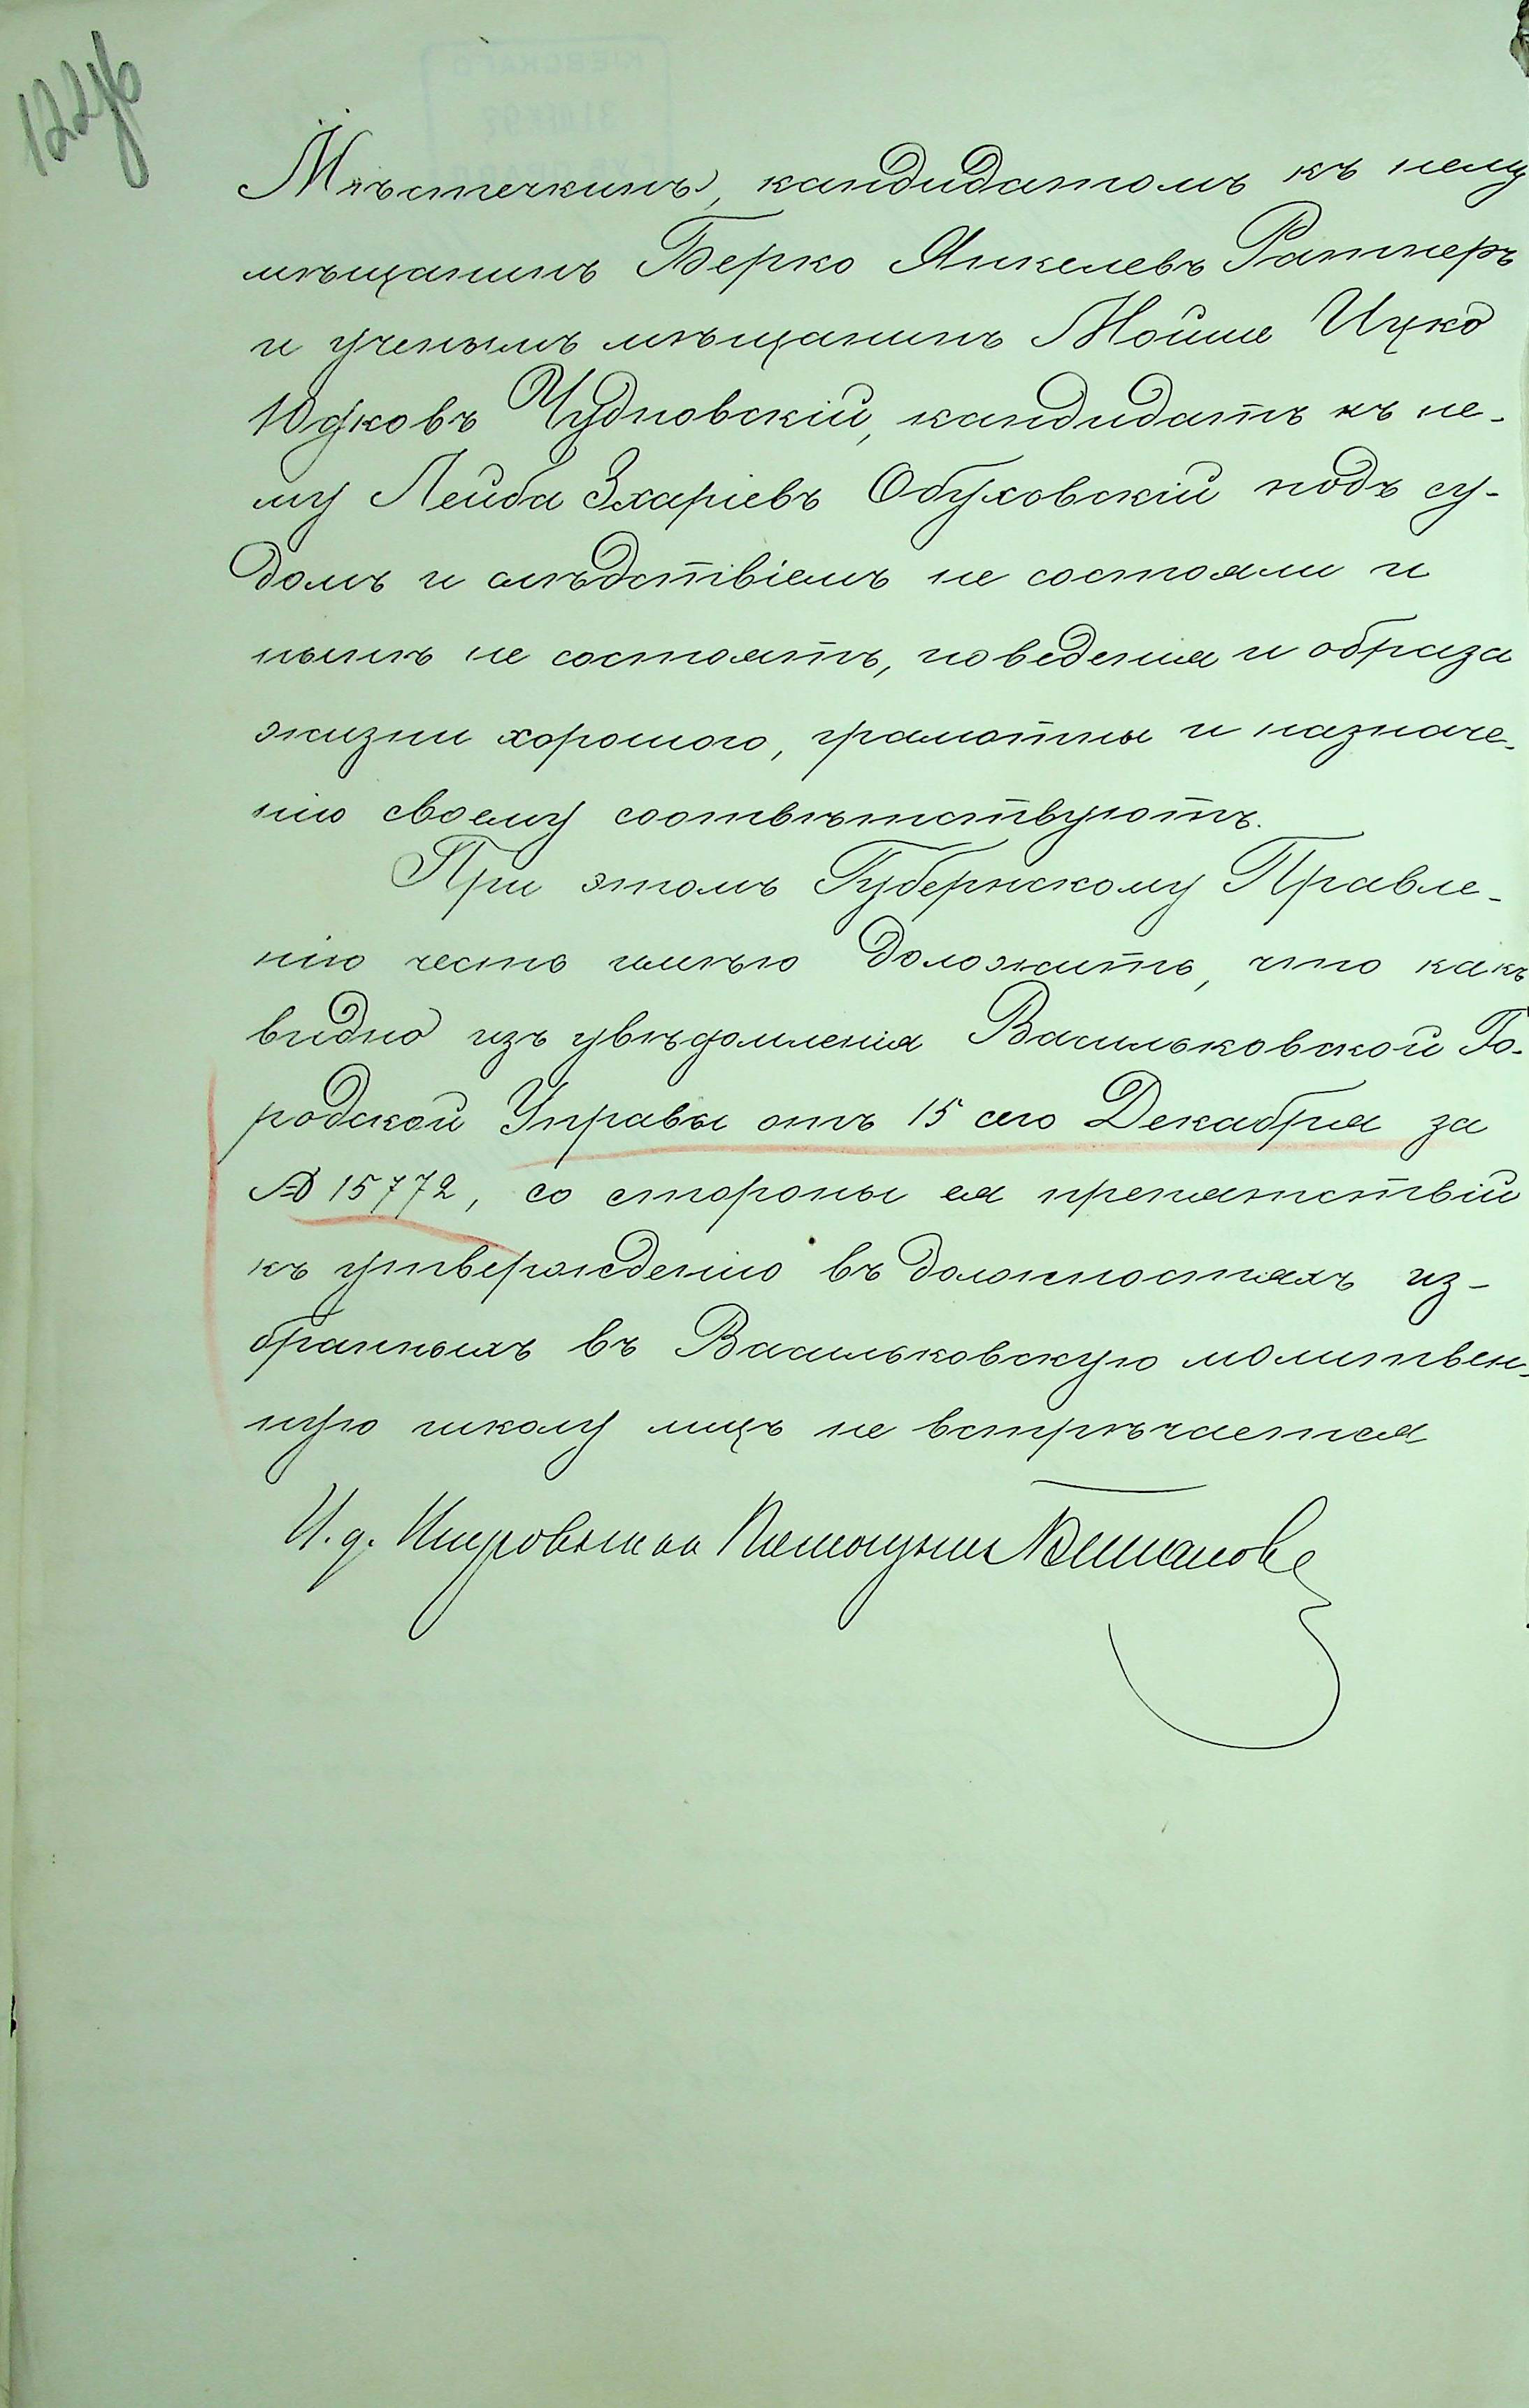 122об
Мѣстечкинъ, кандидатомъ къ нему
мѣщанинъ Берко Янкелевъ Ратнеръ
и ученымъ мѣщанинъ Мойше Ицко
Юдковъ Чудновскій, кандидатъ къ не-
му Лейба Зхаріевъ Обуховскій подъ су-
домъ и слѣдствіемъ не состояли и
нынѣ не состоятъ, поведенія и образа
жизни хорошого, грамотны и назначе-
нію своему соотвѣтствуютъ.
При этомъ Губернскому Правле-
нію честь имѣю доложить, что какъ
видно изъ увѣдомленія Васильковской Го-
родской Управы отъ 15 сего Декабря за
№ 15772, со стороны ея препятствій
къ утвержденію въ должностяхъ из-
бранныхъ въ Васильковскую молитвен-
ную школу лицъ не встрѣчается
И. д. Исправника Помощник